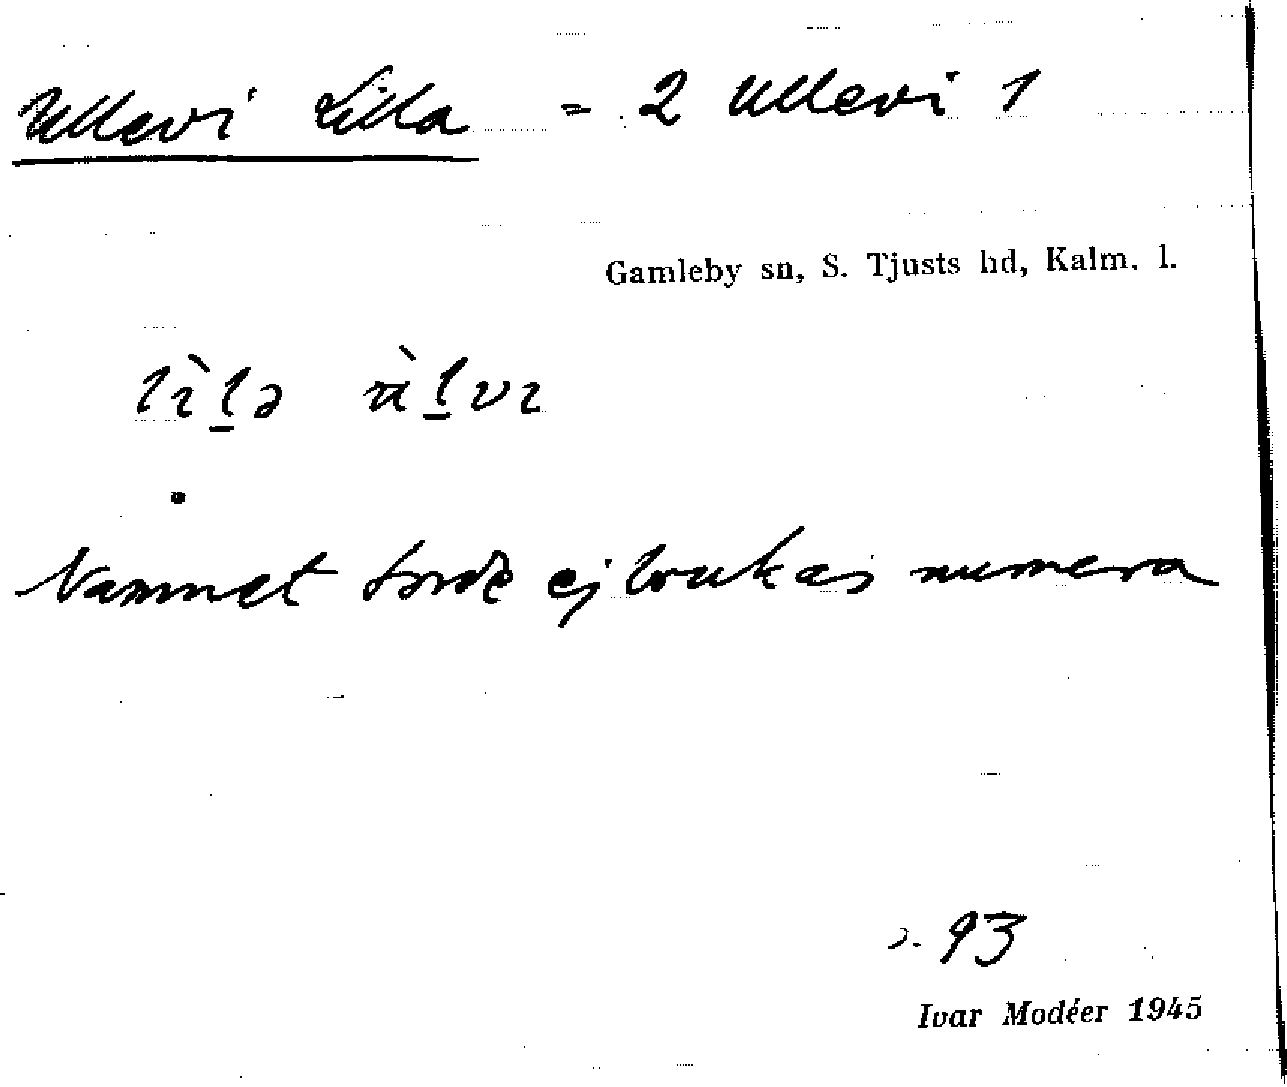 Ullevi Lilla = 2 Ullevi 1
Gamleby sn, S. Tjusts hd, Kalm. l.
lı̀l̲ə ùl̲vı
Namnet torde ej brukas numera
s. 93
Ivar Modéer 1945